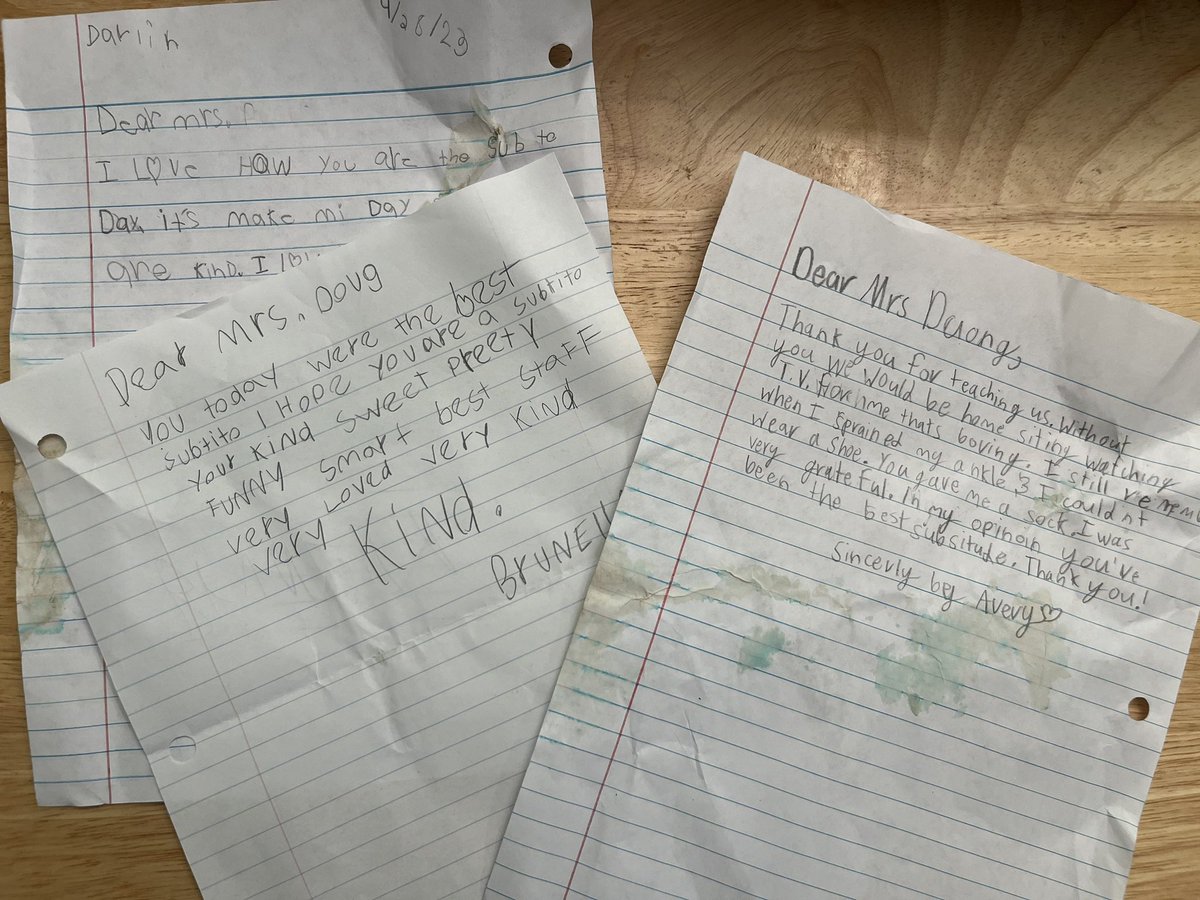 Dariin
9/26/23
Dear mrs.
I LOVE HOW YOU are the sub to
Day, it's make mi DAY
are KIND. I
Dear Mrs. Doug
YOU today were the best
subtito I HOPE YOU are a subtito
Your KIND sweet preety
FUNNY smart best staff
very LOVED very KIND
very KIND.
BRUNEll
Dear Mrs Duong,
Thank you for teaching us. Without
you we would be home siting watching
T.V. For me thats boring. I still remem
when I sprained my ankle & I couldnt
wear a shoe. You gave me a sock. I was
very grateful. In my opinoin you've
been the best subsitude. Thank you!
Sincerly by Avery♡